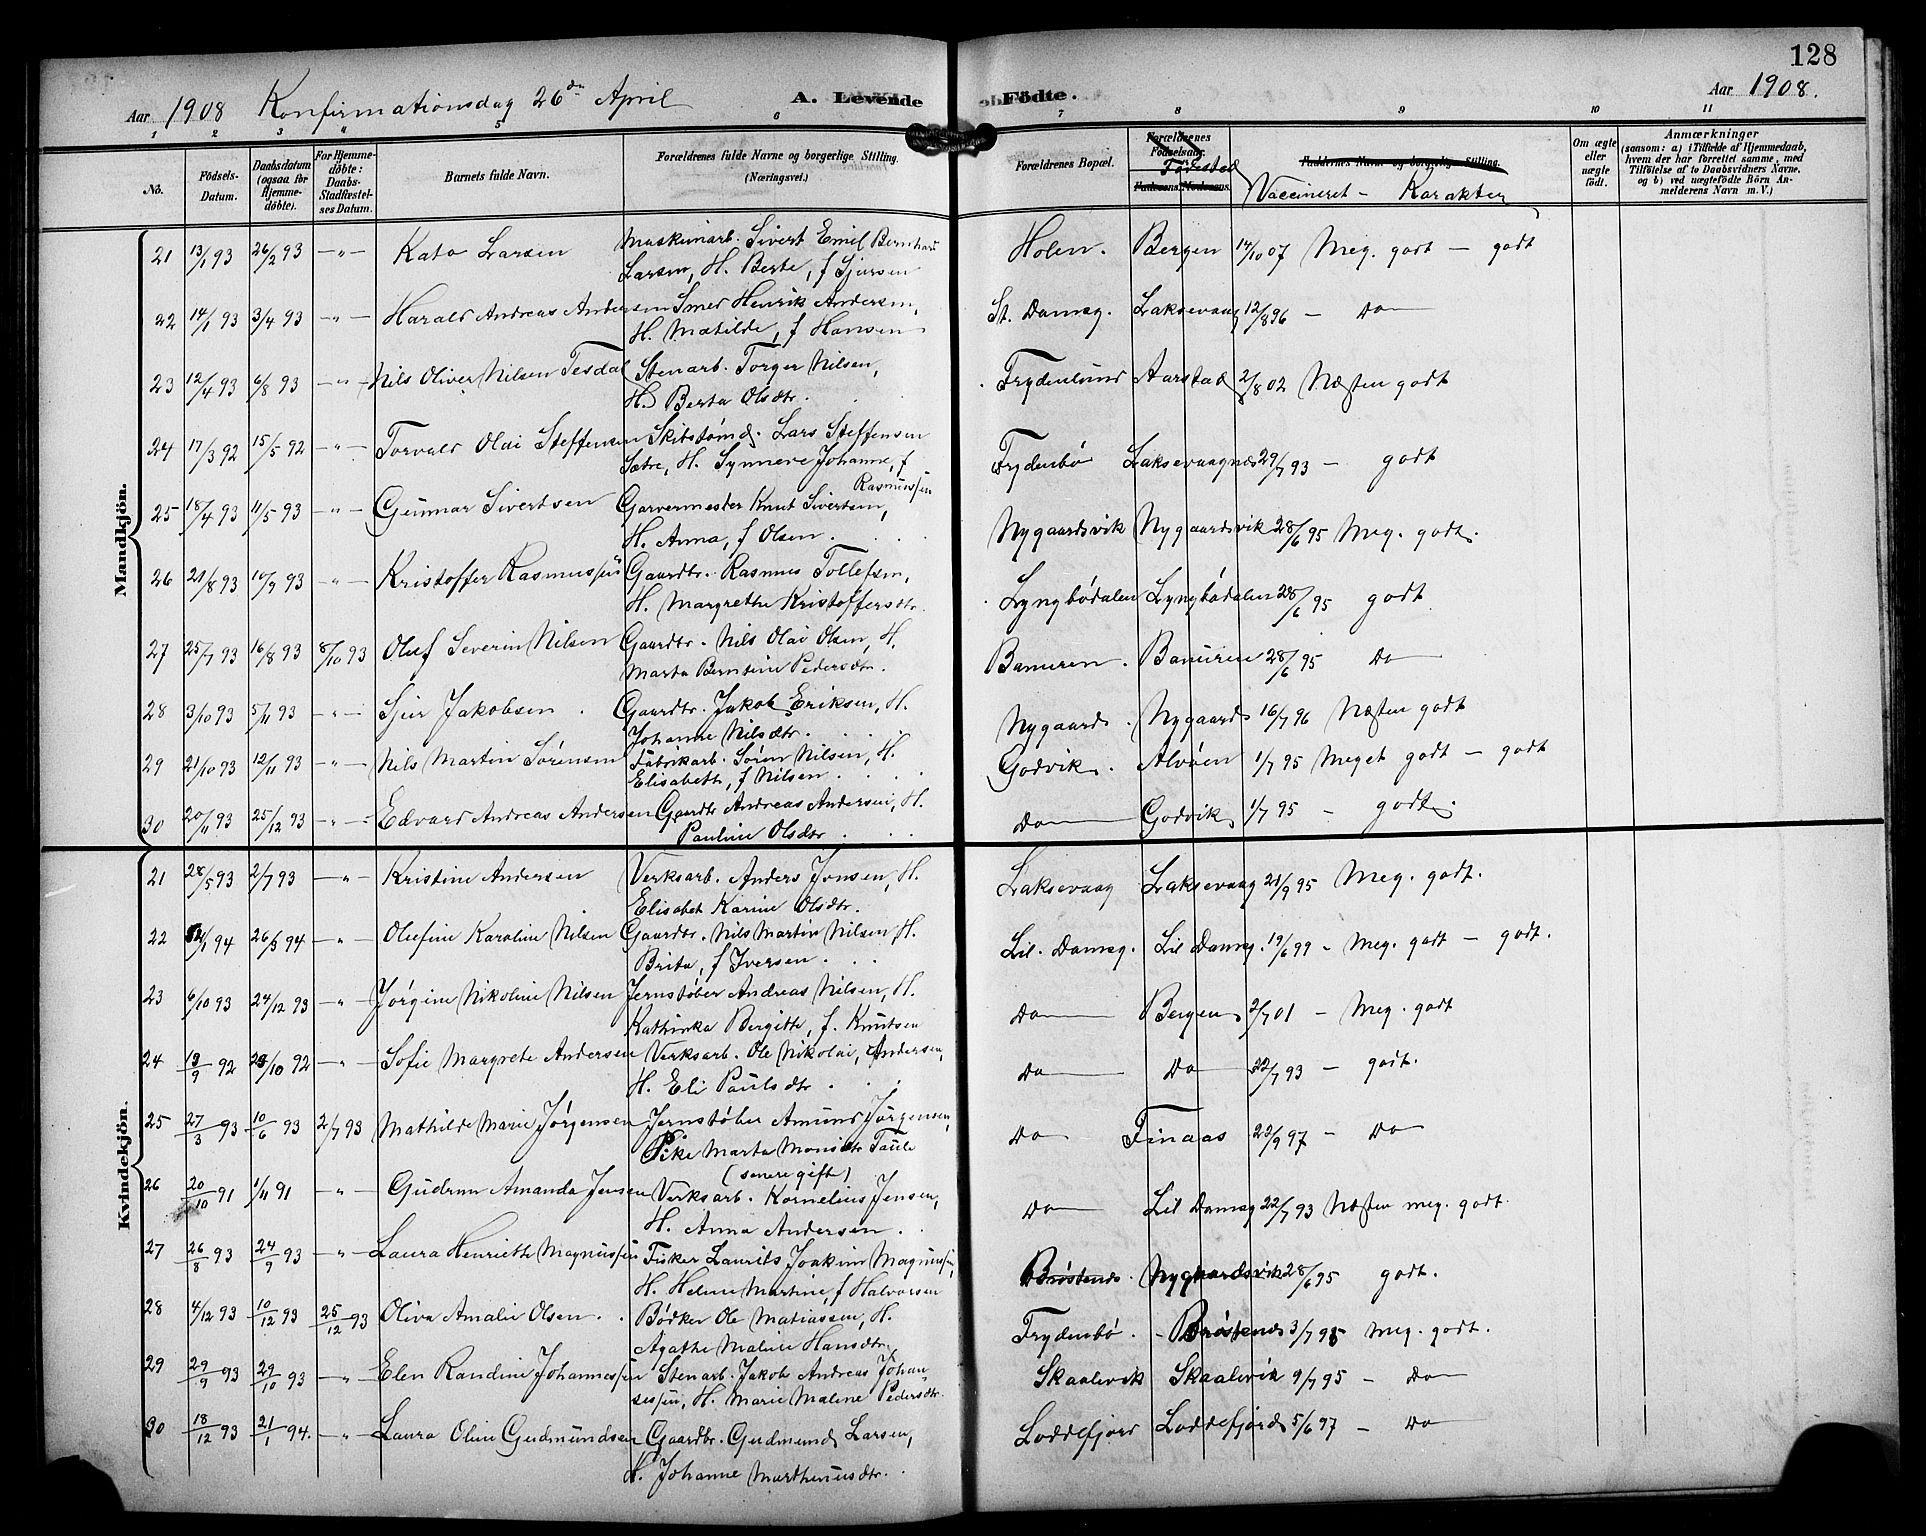 128
Aar 1908 Konfirmationsdag 26de April A. Levende Födte. Aar 1908.
1 2 3 4 5 6 7 8 9 10 11
No. Födsels-Datum. Daabsdatum (ogsaa for Hjemmedöbte). For Hjemmedöbte: Daabs-Stadfæstelses Datum. Barnets fulde Navn. Forældrenes fulde Navne og borgerlige Stilling. (Næringsvei.) Forældrenes Bopæl. Forældrenes Födselsaar. Fødested Faddernes Navne og borgerlig Stilling. Vaccineret - Karakter Om ægte eller uægte födt. Anmærkninger (saasom: a) i Tilfælde af Hjemmedaab, hvem der har forrettet samme, med Tilföielse af to Daabsvidners Navne, og b) ved uægtefödte Börn Anmelderens Navn m. V.)
Mandkjön.
21 13/1 93 26/2 93 —"— Kato Larsen Maskinarb. Sivert Emil Bernhard Holen. Bergen 14/10 07 Meg. godt — godt
Larsen, H. Berte, f Sjursen
22 14/1 93 3/4 93 —"— Harald Andreas Andersen Smed Henrik Andersen, St. Damsg. Laksevaag 12/8 96 — Do
H. Matilde, f Hansen
23 12/4 93 6/8 93 —"— Nils Oliver Nilsen Tesdal Stenarb. Torger Nilsen, Frydenlund Aarstad 2/8 02 Næsten godt
H. Berta Olsdtr.
24 17/3 92 15/5 92 —"— Torvald Olai Steffensen Skibstømd. Lars Steffensen Frydenbø Laksevaagnes 29/7 93 — godt
Sætre, H. Synneve Johanne, f
Rasmussen
25 18/4 93 11/5 93 —"— Gunnar Sivertsen Garvermester Knut Sivertsen, Nygaardsvik Nygaardsvik 28/6 95 Meg. godt.
H. Anna, f Olsen.
26 21/8 93 10/9 93 —"— Kristoffer Rasmussen Gaardbr. Rasmus Tollefsen, Lyngbødalen Lyngbødalen 28/6 95 godt
H. Margrethe Kristoffersdtr.
27 25/7 93 16/8 93 8/10 93 Oluf Severin Nilsen Gaardbr. Nils Olai Olsen, H. Banuren. Banuren 28/6 95 Do
Marta Berntine Pedersdtr.
28 3/10 93 5/11 93 —"— Sjur Jakobsen. Gaardbr. Jakob Eriksen, H. Nygaard. Nygaard 16/7 96 Næsten godt
Johanne Nilsdtr.
29 21/10 93 12/11 93 —"— Nils Martin Sørensen Fabrikarb. Søren Nilsen, H. Godvik. Alvøen 1/7 95 Meget godt — godt
Elisabeth, f Nilsen.
30 20/11 93 25/12 93 —"— Edvard Andreas Andersen Gaardbr Andreas Andersen, H. Do Godvik 1/7 95 — godt.
Pauline Olsdtr.
Kvindekjön.
21 28/5 93 2/7 93 —"— Kristine Andersen Verksarb. Anders Jonsen, H. Laksevaag Laksevaag 21/9 95 Meg. godt.
Elisabet Karine Olsdtr.
22 /1 94 26/3 94 —"— Olufine Karoline Nilsen Gaardbr. Nils Martin Nilsen, H. Lil. Damsg. Lil Damsg. 19/6 99 — Meg. godt — godt.
Brita, f Iversen.
23 6/10 93 24/12 93 —"— Jørgine Nikoline Nilsen Jernstøber Andreas Nilsen, H. Do Bergen 2/7 01 — Meg. godt
Kathinka Bergitte, f. Knutsen
24 13/9 92 /10 92 —"— Sofie Margrete Andersen Verksarb. Ole Nikolai Andersen, Do Do 22/7 93 — godt.
H. Eli Paulsdtr.
25 27/3 93 10/6 93 2/7 93 Mathilde Marie Jørgensen Jernstøber Amund Jørgensen, Do Finaas 22/9 97 — Do
Pike Marta Monsdtr Taule
(senere gift)
26 20/10 91 1/11 91 —"— Gudrun Amanda Jensen Verksarb. Kornelius Jensen, Do Lil Damsg 22/7 93 Næsten meg. godt.
H. Anna Andersen.
27 26/8 93 24/9 93 —"— Laura Henriette Magnussen Fisker Laurits Joakim Magnussen, Brøstenes. Nygaardsvik 28/6 95 godt.
H. Helene Martine, f Halvorsen
28 4/12 93 10/12 93 25/12 93 Oliva Amalie Olsen. Bødker Ole Matiassen, H. Frydenbø. - Brøstenes 3/7 95 Meg. godt.
Agathe Maline Hansdtr.
29 29/9 93 29/10 93 —"— Elen Randine Johannessen Stenarb. Jakob Andreas Johan- Skaalevik Skaalevik 9/7 95 — Do
nessen, H. Marie Malene Pedersdtr.
30 18/12 93 21/1 94. —"— Laura Oline Gudmundsen Gaardbr. Gudmund Larsen, Loddefjord Loddefjord 5/6 97 — Do
H. Johanne Marthinusdtr.